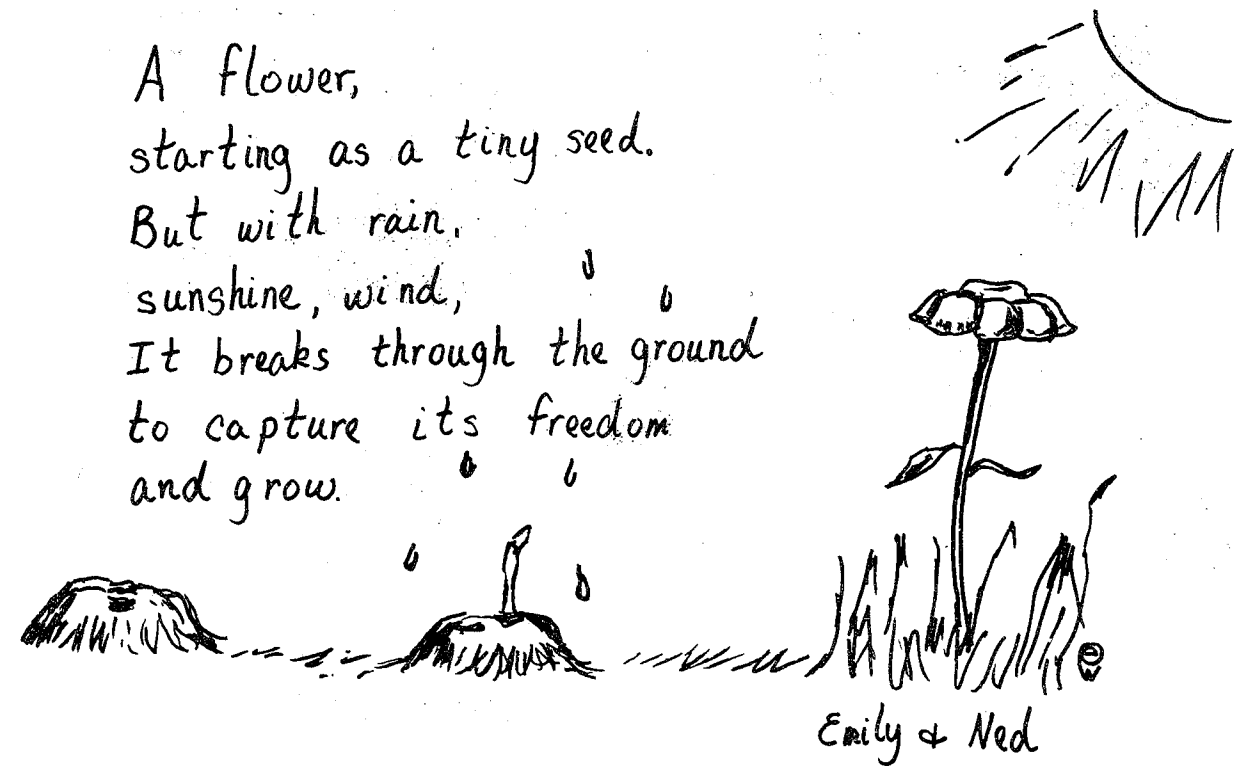 A flower,
starting as a tiny seed.
But with rain,
sunshine, wind,
It breaks through the ground
to capture its freedom
and grow.
Emily & Ned